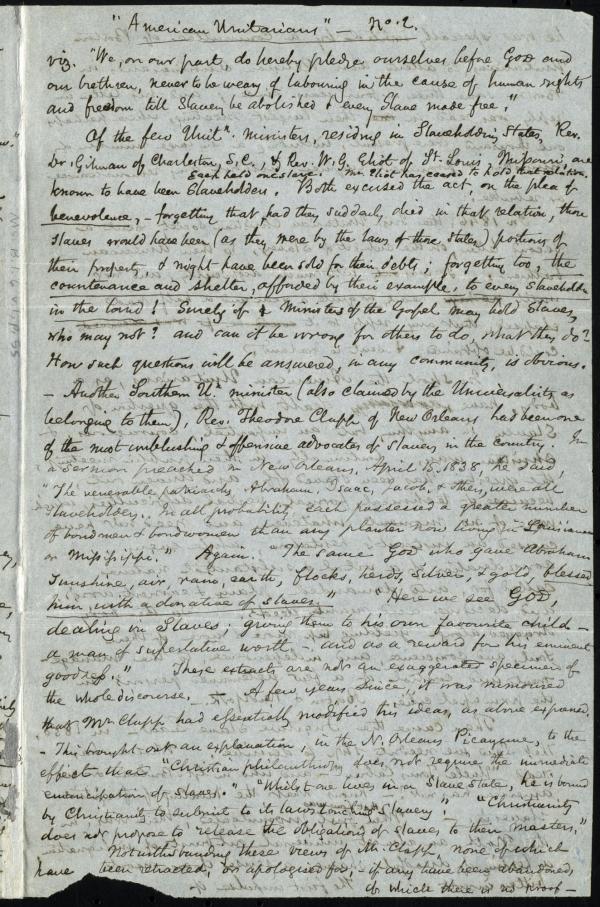 "American Unitarians" — No. 2.
viz. "We, on our part, do hereby pledge ourselves before God and
our brethren, never to be weary of labouring in the cause of human rights
and freedom till Slavery be abolished & every Slave made free."
Of the few Unitn. ministers, residing in Slaveholding States, Rev.
Dr. Gilman of Charleston, S.C., & Rev. W. G. Eliot of St. Louis, Missouri, are
Each held one slave. Mr. Eliot has ceased to hold that relation.
known to have been Slaveholders. Both excused the act, on the plea of
benevolence, – forgetting that, had they suddenly died in that relation, those
Slaves would have been (as they were by the laws of those States) portions of
their property, & might have been sold for their debts; forgetting too, the
countenance and shelter, afforded by their example, to every Slaveholder
in the land! Surely if Ministers of the Gospel may hold Slaves,
who may not? and can it be wrong for others to do, what they do?
How such questions will be answered, in any community, is obvious.
– Another Southern U. minister (also claimed by the Universalists as
belonging to them), Rev. Theodore Clapp of New Orleans, had been one
of the most unblushing & offensive advocates of Slavery in the country. In
a Sermon preached in New Orleans, April 15, 1838, he said,
"The venerable patriarchs, Abraham, Isaac, Jacob, & others, were all
slaveholders. In all probability, each possessed a greater number
of bondmen & bondwomen than any planter now living in Louisiana
or Mississippi." Again. "The same God who gave Abraham
Sunshine, air, rain, earth, flocks, herds, Silver, & gold, blessed
him, with a donative of Slaves." "Here we see GOD,
dealing in Slaves; giving them to his own favourite child –
a man of superlative worth –, and as a reward for his eminent
goodness." These extracts are not an exaggerated specimen of
the whole discourse. – A few years since, it was rumoured
that Mr. Clapp had essentially modified his ideas, as above expressed.
– This brought out an explanation, in the N. Orleans Picayune, to the
effect that "Christian philanthropy does not require the immediate
emancipation of Slaves." "Whilst one lives in a Slave State, he is bound
by Christianity to submit to its laws touching Slavery." "Christianity
does not propose to release the obligations of Slaves to their masters."
Notwithstanding these views of Mr. Clapp, none of which
have been retracted, or apologised for, – if any have been abandoned,
of which there is no proof –